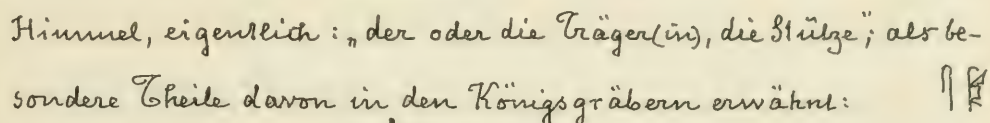 Himmel, eigentlich: „der oder die Träger(in), die Stütze“; als be-
sondere Theile davon in den Königsgräbern erwähnt: